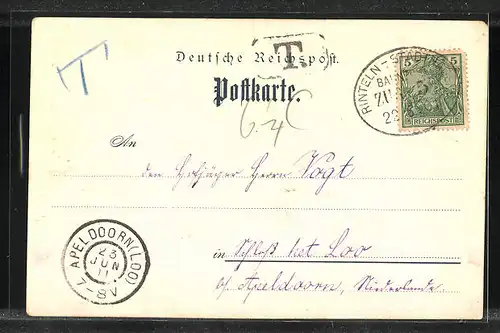 T
Deutsche Reichspost.
T.
Postkarte.
RINTELN-STADTH
BAHN
ZUG 5
22
5 5
REICHSPOST
6.4
An
den Hofjäger Herrn Vogt
in Schloß het Loo
b/ Apeldoorn, Niederlande.
APELDOORN (LOO)
23
JUN
11
7-8V